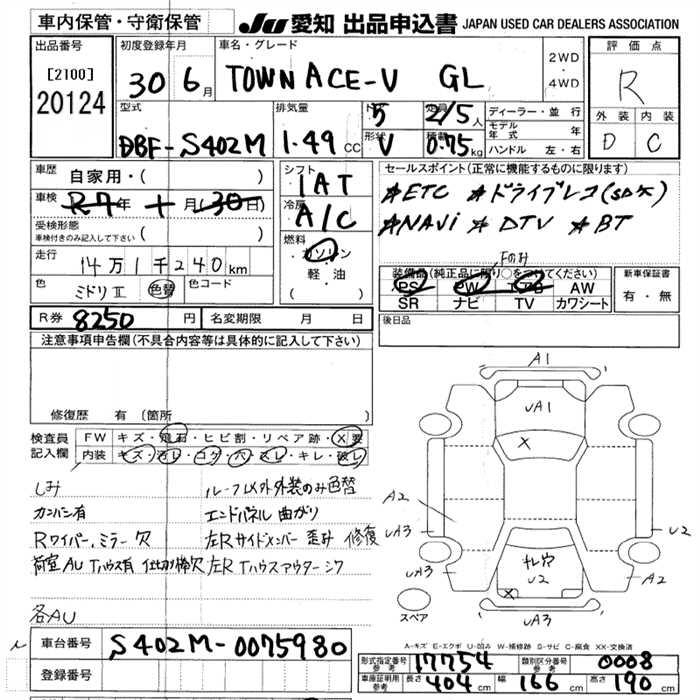 車内保管・守衛保管
JU 愛知 出品申込書 JAPAN USED CAR DEALERS ASSOCIATION
出品番号
[2100]
20124
初度登録年月
30 6月
車名・グレード
TOWN ACE-V GL
2WD
・
4WD
評価点
R
外装 内装
D C
型式
DBF-S402M
排気量
1.49 CC
ドア
5
定員
2/5人
形状
V
積載
0.75kg
ディーラー・並行
モデル年式 年
ハンドル 左・右
車歴
自家用・( )
車検
R7年 + 月(30日)
受検形態
車検付きのみ記入して下さい ( )
走行
14万1千240km
色
ミドリII 色替
色コード
シフト
IAT
冷房
A/C
燃料
ガソリン
・
軽油
( )
セールスポイント(正常に機能するものに限ります)
#ETC #ドライブレコ(SDカ)
#NAVi # DTV # BT
Fのみ
装備品(純正品に限り○をつけてください)
PS PW エアB AW
SR ナビ TV カワシート
新車保証書
有・無
R券 8250 円
名変期限 月 日
後日品
注意事項申告欄(不具合内容等は具体的に記入して下さい)
修復歴 有 (箇所
検査員記入欄
FW キズ・飛石・ヒビ割・リペア跡・X要
内装 キズ・汚レ・コゲ・穴・スレ・キレ・破レ
しみ
カンバン有
Rワイパー、ミラー欠
荷室AU Tハウス有 仕切り棒欠
各AU
ルーフ以外外装のみ色替
エンドパネル 曲がり
左Rサイドメンバー 歪み 修復
左R Tハウスアウター シワ
A1
UA1
X
A2
UA3
U2
UA3
A2
サレヤ
U2
X
UA3
スペア
A-キズ E-エクボ U-凹み W-補修跡 S-サビ C-腐食 XX-交換済
車台番号 S402M-0075980
登録番号
形式指定番号 参考 17754
類別区分番号 参考 0008
車庫証明用 参考 長さ 404cm 幅 166cm 高さ 190cm